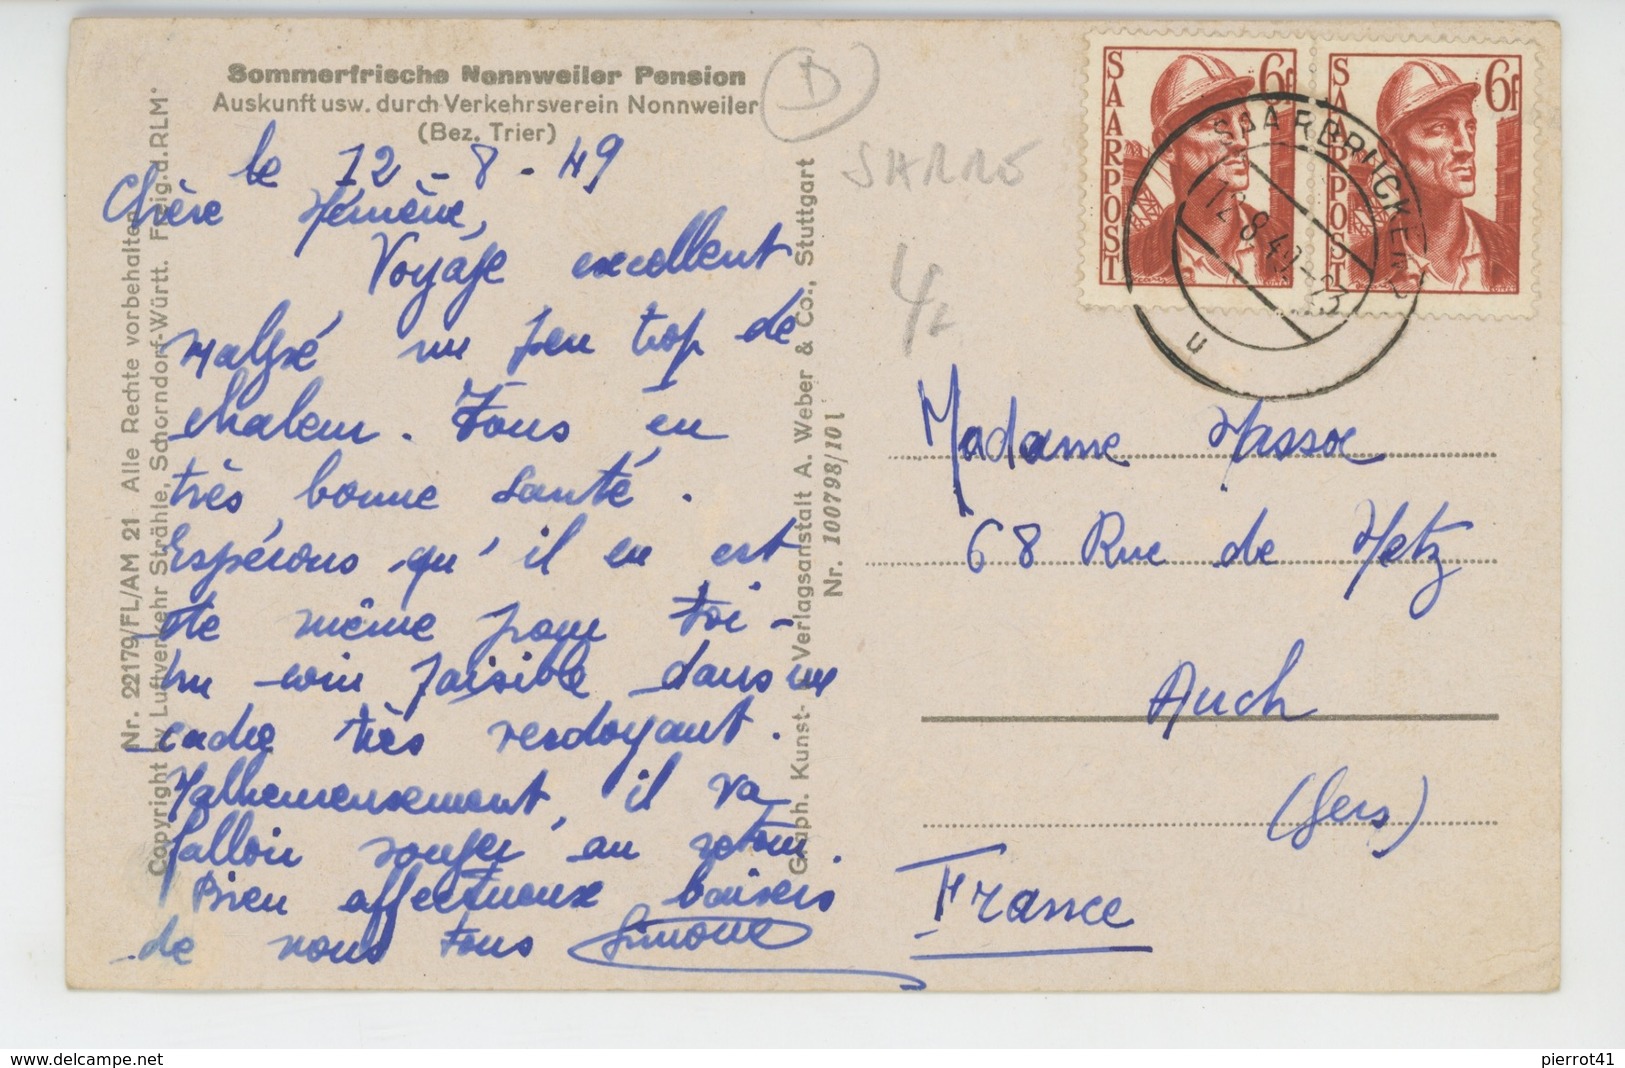 Sommerfrische Nonnweiler Pension
Auskunft usw. durch Verkehrsverein Nonnweiler
(Bez. Trier)
D
le 12-8-49
Chère Mémène,
Voyage excellent
malgré un peu trop de
chaleur. Tous en
très bonne santé.
Espérons qu'il en est
de même pour toi -
Un coin paisible dans un
cadre très verdoyant.
Malheureusement, il va
falloir songer au retour.
Bien affectueux baisers
de nous tous Simone
Nr. 22179/FL/AM 21 Alle Rechte vorbehalten
Copyright by Luftverkehr Strähle, Schorndorf-Württ. Freig.d.RLM.
Graph. Kunst- & Verlagsanstalt A. Weber & Co., Stuttgart
Nr. 100798/101
SARRE
4/2
SAARPOST 6f
SAARPOST 6f
SAARBRÜCKEN 2
12.8.49.-23
u
Madame Massoc
68 Rue de Metz
Auch
(Gers)
France
www.delcampe.net
pierrot41